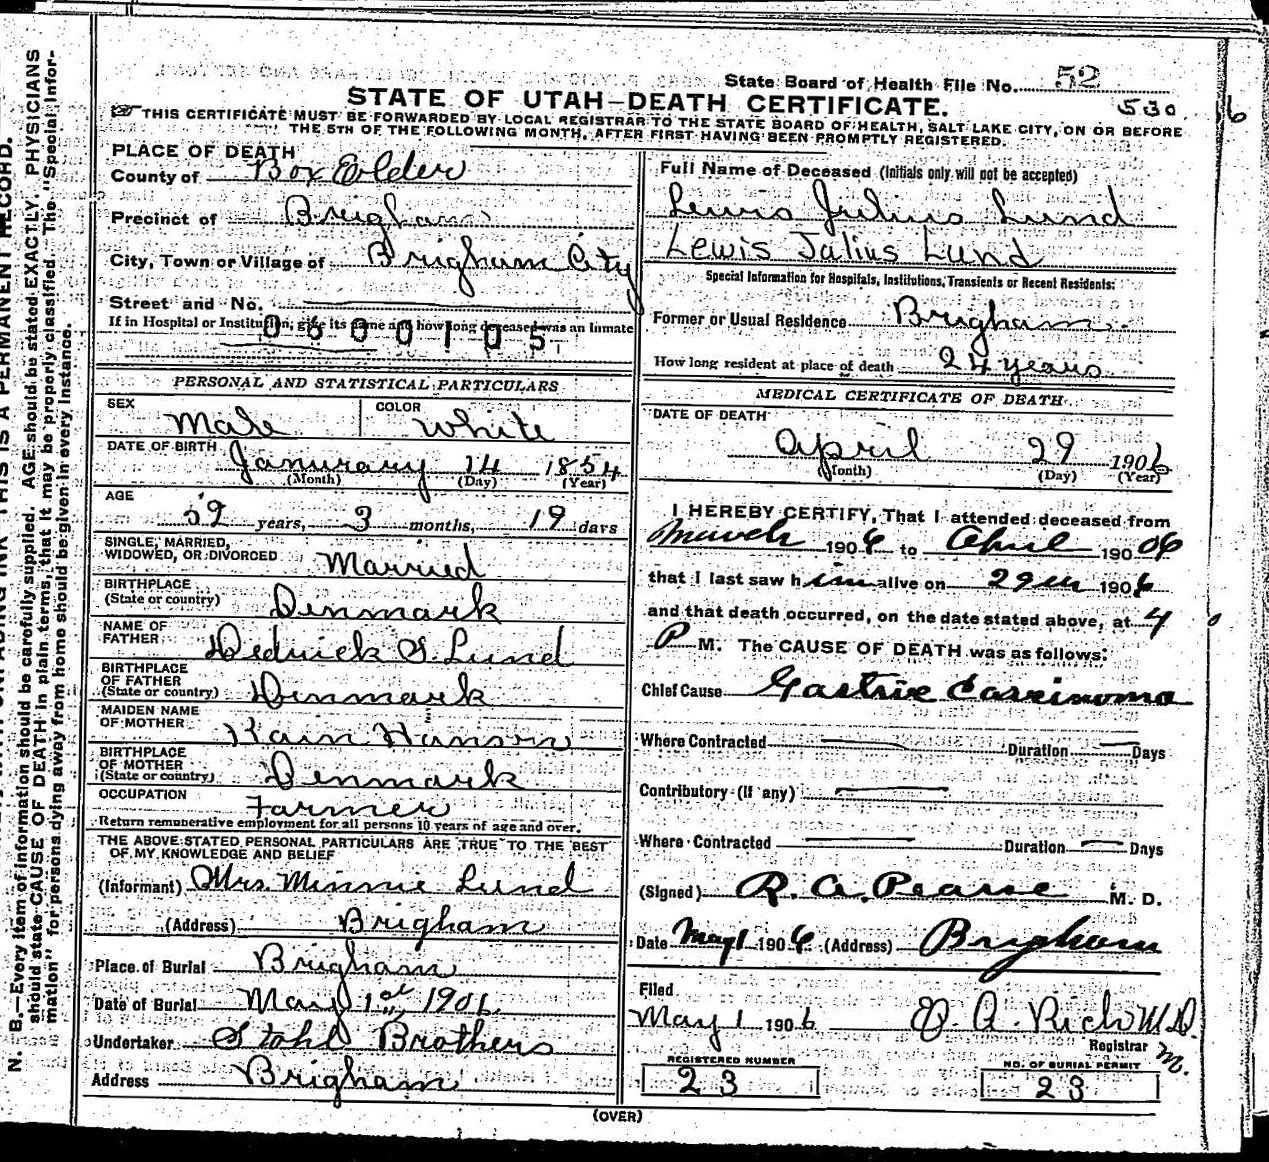 State Board of Health File No. 52
530
STATE OF UTAH—DEATH CERTIFICATE.
THIS CERTIFICATE MUST BE FORWARDED BY LOCAL REGISTRAR TO THE STATE BOARD OF HEALTH, SALT LAKE CITY, ON OR BEFORE
THE 5TH OF THE FOLLOWING MONTH, AFTER FIRST HAVING BEEN PROMPTLY REGISTERED.
PLACE OF DEATH
County of Box Elder
Precinct of Brigham
City, Town or Village of Brigham City
Street and No.
If in Hospital or Institution, give its name and how long deceased was an inmate
0600105
PERSONAL AND STATISTICAL PARTICULARS
SEX Male COLOR White
DATE OF BIRTH Janurary 14 1854
(Month) (Day) (Year)
AGE
52 years, 3 months, 19 days
SINGLE, MARRIED,
WIDOWED, OR DIVORCED Married
BIRTHPLACE
(State or country) Denmark
NAME OF
FATHER Dedrick S. Lund
BIRTHPLACE
OF FATHER
(State or country) Denmark
MAIDEN NAME
OF MOTHER Karn Hansen
BIRTHPLACE
OF MOTHER
(State or country) Denmark
OCCUPATION Farmer
Return remunerative employment for all persons 10 years of age and over.
THE ABOVE STATED PERSONAL PARTICULARS ARE TRUE TO THE BEST
OF MY KNOWLEDGE AND BELIEF
(Informant) Mrs. Minnie Lund
(Address) Brigham
Place of Burial Brigham
Date of Burial May 1st 1906
Undertaker Stohl Brothers
Address Brigham
Full Name of Deceased (Initials only will not be accepted)
Lewis Julius Lund
Lewis Julius Lund
Special Information for Hospitals, Institutions, Transients or Recent Residents:
Former or Usual Residence Brigham
How long resident at place of death 24 years
MEDICAL CERTIFICATE OF DEATH
DATE OF DEATH
April 29 1906
(Month) (Day) (Year)
I HEREBY CERTIFY, That I attended deceased from
March 1906 to April 19006
that I last saw him alive on 29th 1906
and that death occurred, on the date stated above, at 4
P M. The CAUSE OF DEATH was as follows:
Chief Cause Gastric Carcinoma
Where Contracted Duration Days
Contributory (If any)
Where Contracted Duration Days
(Signed) R. A. Pearse M. D.
Date May 1 1906 (Address) Brigham
Filed
May 1 1906 A. Rich M.D.
Registrar
REGISTERED NUMBER
23
NO. OF BURIAL PERMIT
23
(OVER)
N. B.—Every item of information should be carefully supplied. AGE should be stated EXACTLY. PHYSICIANS
should state CAUSE OF DEATH in plain terms, that it may be properly classified. The "Special Infor-
mation" for persons dying away from home should be given in every instance.
THIS IS A PERMANENT RECORD.